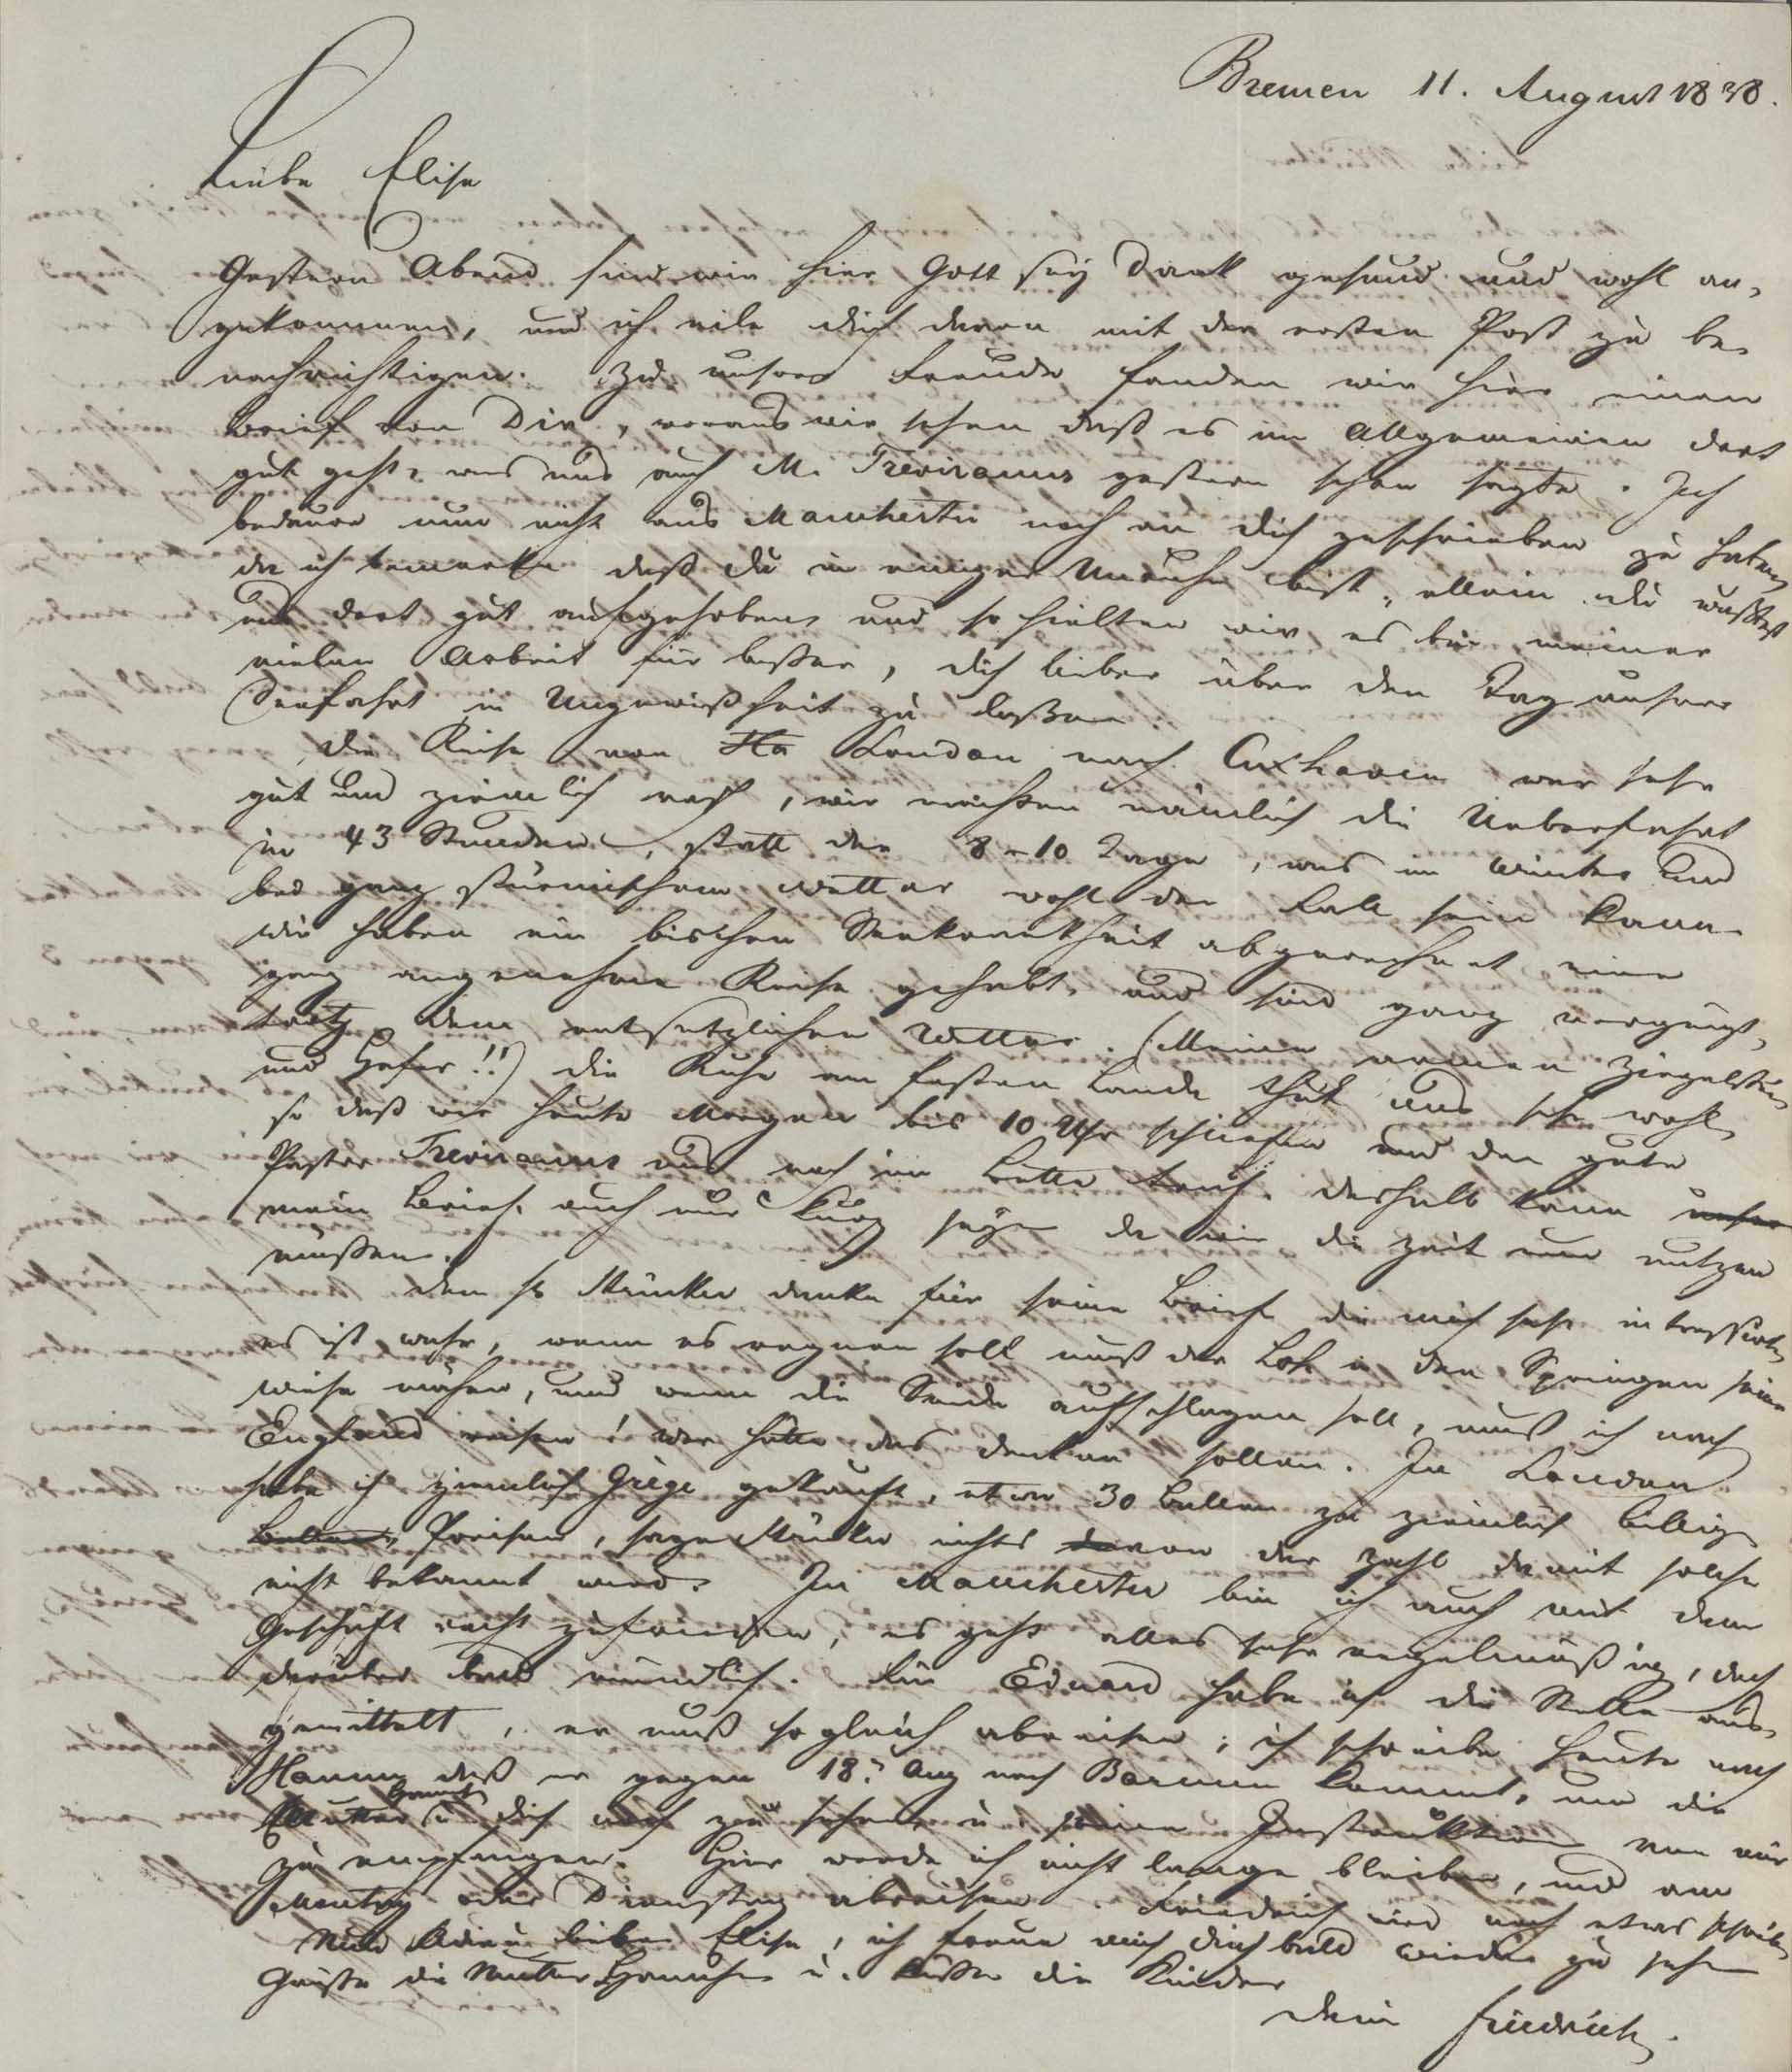 Bremen 11. August 1838.
Liebe Elise
Gestern Abend sind wir hier Gott sey Dank gesund und wohl an-
gekommen, und ich eile dich davon mit der ersten Post zu be-
nachrichtigen. Zu unserer Freude fanden wir hier einen
Brief von Dir, woraus wir sehen daß es im Allgemeinen dort
gut geht, was uns auch M. Treviranus gestern schon sagte. Ich
bedaure nun nicht aus Manchester noch an dich geschrieben zu haben,
da ich bemerke daß du in einiger Unruhe bist, allein du wußtest
uns dort gut aufgehoben, und so hielten wir es bei meiner
vielen Arbeit für besser, dich lieber über den Tag unsrer
Seefahrt in Ungewißheit zu laßen.
Die Reise von Ha London nach Cuxhaven war sehr
gut und ziemlich rasch, wir machten nämlich die Ueberfahrt
in 43 Stunden, statt der 8-10 Tage, was im Winter und
bei ganz stürmischem Wetter wohl der Fall sein kann.
Wir haben ein bischen Seekrankheit abgerechnet eine
ganz angenehme Reise gehabt, und sind ganz vergnügt,
trotz dem entsetzlichen Wetter. (Meine armen Ziegelsteine
und Hafer!!) Die Ruhe am festen Lande thut uns sehr wohl,
so daß wir heute Morgen bis 10 Uhr schliefen und der gute
Pastor Treviranus uns noch im Bette traf. deshalb kann unser
mein Brief auch nur kurz seyn da wir die Zeit nun nutzen
müssen.
dem H Stücker danke für seine Briefe die mich sehr interessirten,
es ist wahr, wenn es regnen soll muß der Loh in den Springen seine
Wiese mähen, und wenn die Seide aufschlagen soll, muß ich nach
England reisen! Wer hätte das denken sollen. In London
habe ich ziemlich Grège gekauft, etwa 30 Ballen zu ziemlich billigen
Ballen, Preisen, sage Stücker nichts davon der Zahl damit solche
nicht bekannt wird. In Manchester bin ich auch mit dem
Geschäft recht zufrieden, es geht alles sehr regelmäßig, doch
darüber bald mündlich. Für Eduard habe ich die Stelle aus-
gemittelt, er muß sogleich abreisen; ich schreibe heute nach
Hamm daß er gegen 18. Aug nach Barmen kommt, um die
Mutter u dich noch zu sehen u. seine Instruktion von mir
zu empfangen. Hier werde ich nicht lange bleiben, und am
Montag oder Dienstag abreisen. Friedrich wird noch etwas schreiben
Nun Adieu liebe Elise, ich freue mich dich bald wieder zu sehen
Grüße die Mutter, Hannchen u. küsse die Kinder
dein Friedrich.